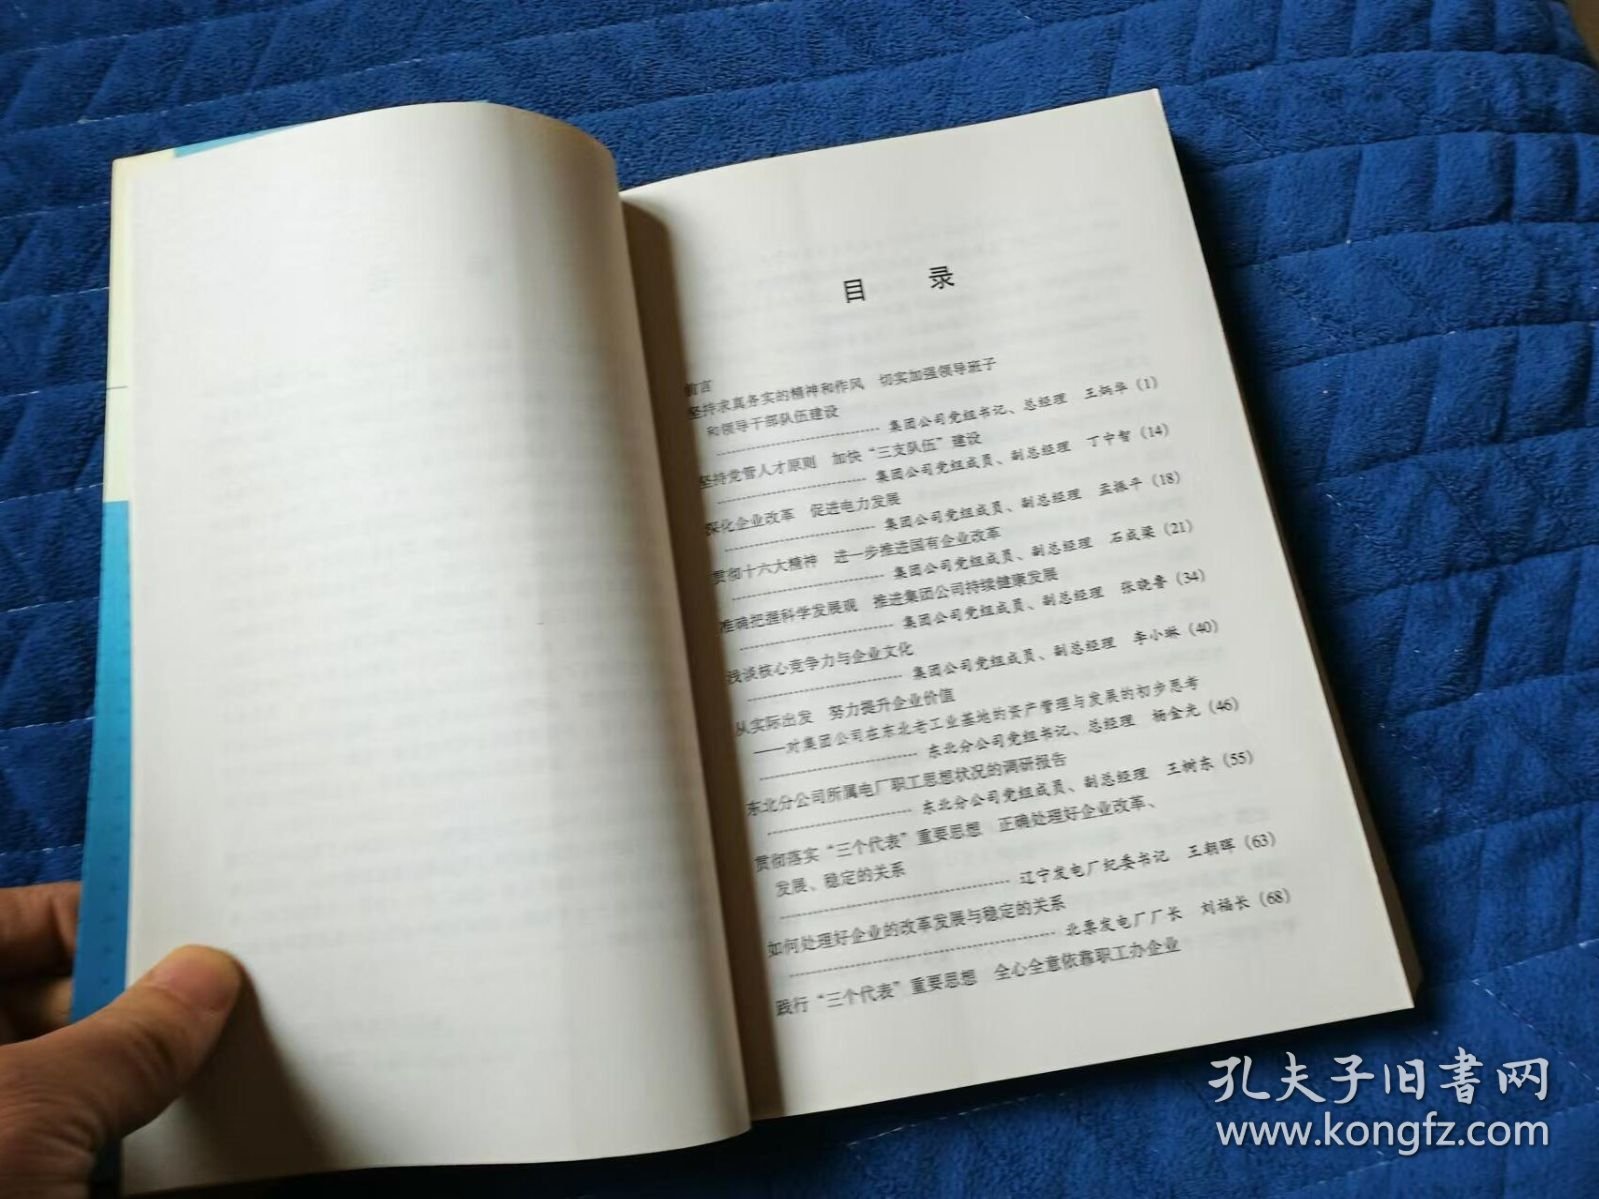 目 录
前言
坚持求真务实的精神和作风 切实加强领导班子
和领导干部队伍建设
集团公司党组书记、总经理 王炳华(1)
坚持党管人才原则 加快“三支队伍”建设
集团公司党组成员、副总经理 丁中智(14)
深化企业改革 促进电力发展
集团公司党组成员、副总经理 孟振平(18)
贯彻十六大精神 进一步推进国有企业改革
集团公司党组成员、副总经理 石成梁(21)
准确把握科学发展观 推进集团公司持续健康发展
集团公司党组成员、副总经理 张晓鲁(34)
浅谈核心竞争力与企业文化
集团公司党组成员、副总经理 李小琳(40)
从实际出发 努力提升企业价值
——对集团公司在东北老工业基地的资产管理与发展的初步思考
东北分公司党组书记、总经理 杨金光(46)
东北分公司所属电厂职工思想状况的调研报告
东北分公司党组成员、副总经理 王树东(55)
贯彻落实“三个代表”重要思想 正确处理好企业改革、
发展、稳定的关系
辽宁发电厂纪委书记 王朝晖(63)
如何处理好企业的改革发展与稳定的关系
北票发电厂厂长 刘福长(68)
践行“三个代表”重要思想 全心全意依靠职工办企业
孔夫子旧書网
www.kongfz.com